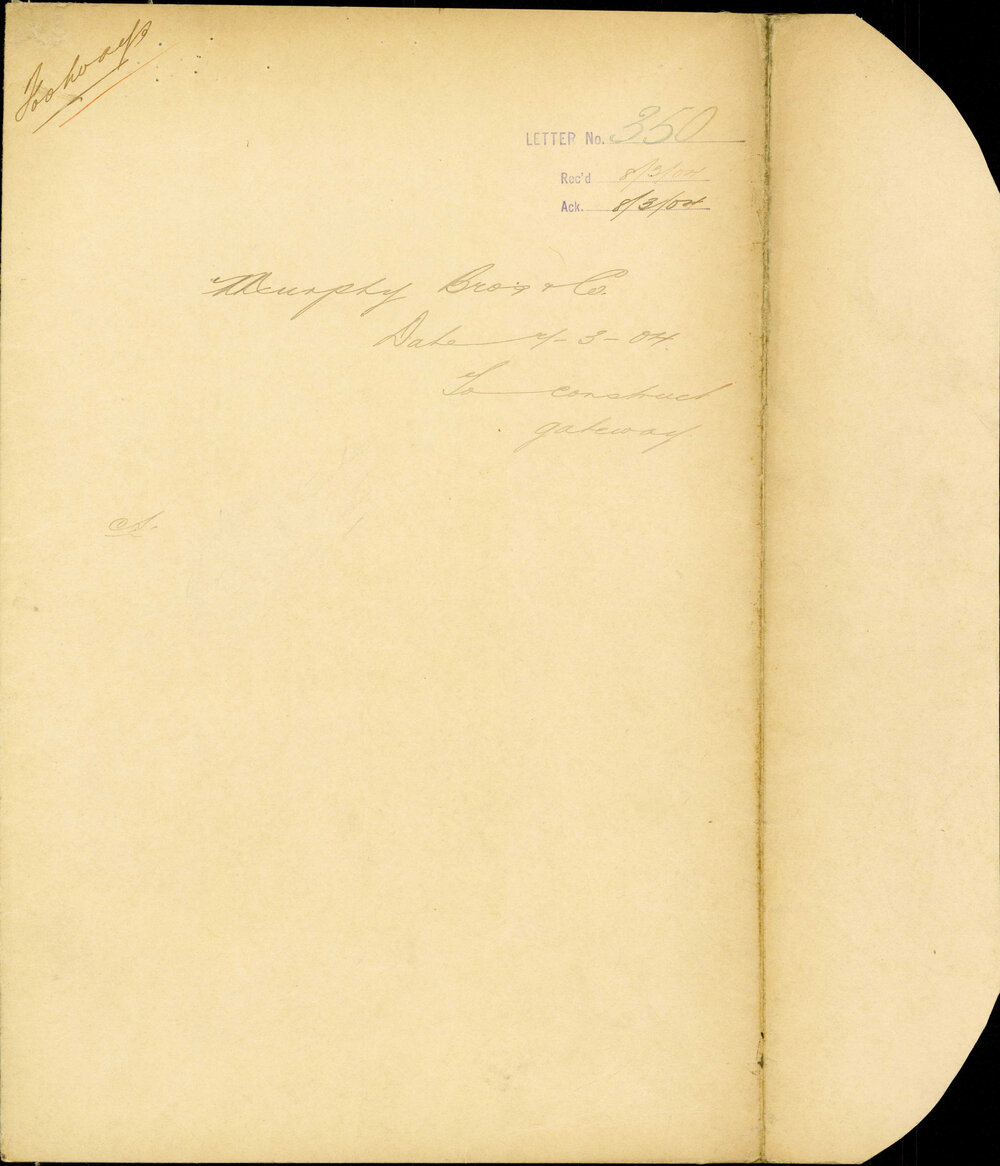 Footways
LETTER No. 350
Rec'd 8/3/04
Ack. 8/3/04
Murphy Bros & Co.
Date 7-3-04.
To construct
gateway.